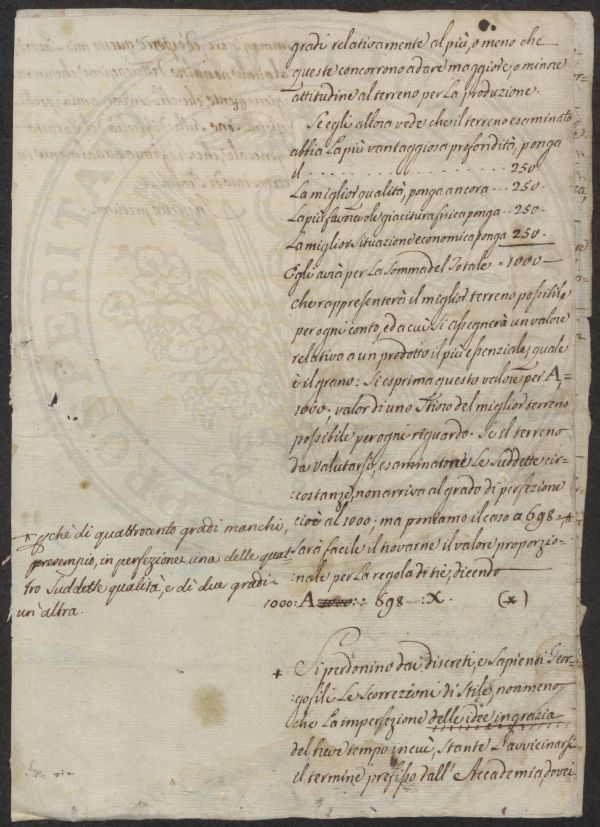 gradi relativamente al più, o meno che
queste concorrono a dare maggiore, o minore
attitudine al terreno per la produzione.
Se egli allora vede che il terreno esaminato
abbia la più vantaggiosa profondità, ponga
il . . . . . . . . . . . . 250
La miglior qualità, ponga ancora . . . 250.
La più favorevole giacitura fisica ponga . . 250.
La miglior situazione economica ponga 250.
Egli avrà per la somma del Totale " 1000 —
che rappresenterà il miglior terreno possibile
per ogni conto, ed a cui si assegnerà un valore
relativo a un prodotto il più essenziale, quale
è il grano: Si esprima questo valore per A,=
1000, valor di uno Stioro del miglior terreno
possibile per ogni riguardo. Se il terreno
da valutarsi, esaminatone le suddette cir=
:costanze, non arriva al grado di perfezione
cioè al 1000; ma poniamo il caso a 698 +
sarà facile il trovarne il valore proporzio=
:nale per la regola di trè, dicendo
1000: A :: 698 — : X. (*)
+ Si perdonino dai discreti, e sapienti Geor=
:gofili le scorrezioni di stile, non meno
che la imperfezione delle idee in grazia
del breve tempo in cui, stante l'avvicinarsi
il termine prefisso dall'Accademia, dovei
+ chè di quattrocento gradi manchi,
per esempio, in perfezione una delle quat=
tro suddette qualità, e di due gradi
un'altra.